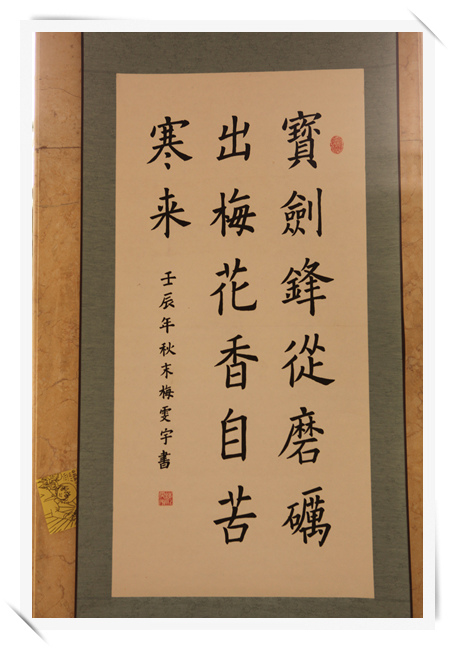 寶劍鋒從磨礪
出梅花香自苦
寒来
壬辰年秋末梅雯宇書